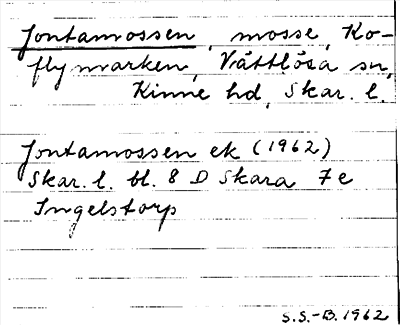 Jontamossen, mosse, Ko-
flymarken, Vättlösa sn,
Kinne hd, Skar. l.
Jontamossen ek (1962)
Skar. l. bl. 8 D Skara 7e
Ingelstorp
S.S.-B. 1962